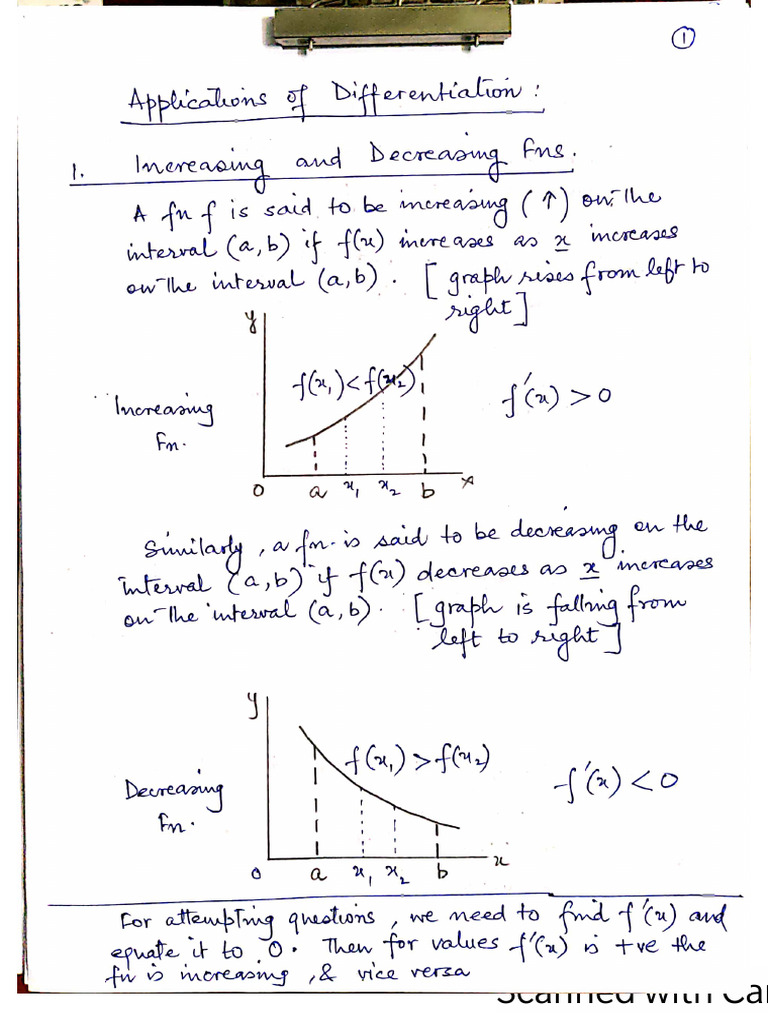 1
Applications of Differentiation :
1. Increasing and Decreasing Fns.
A fn f is said to be increasing (↑) on the
interval (a, b) if f(x) increases as x increases
on the interval (a, b). [graph rises from left to
right]
y
f(x₁) < f(x₂)
f'(x) > 0
Increasing
Fn.
0 a x₁ x₂ b x
Similarly, a fn. is said to be decreasing on the
interval (a, b) if f(x) decreases as x increases
on the interval (a, b). [graph is falling from
left to right]
y
f(x₁) > f(x₂)
f'(x) < 0
Decreasing
Fn.
0 a x₁ x₂ b x
For attempting questions, we need to find f'(x) and
equate it to 0. Then for values f'(x) is +ve the
fn is increasing, & vice versa
Scanned with Ca